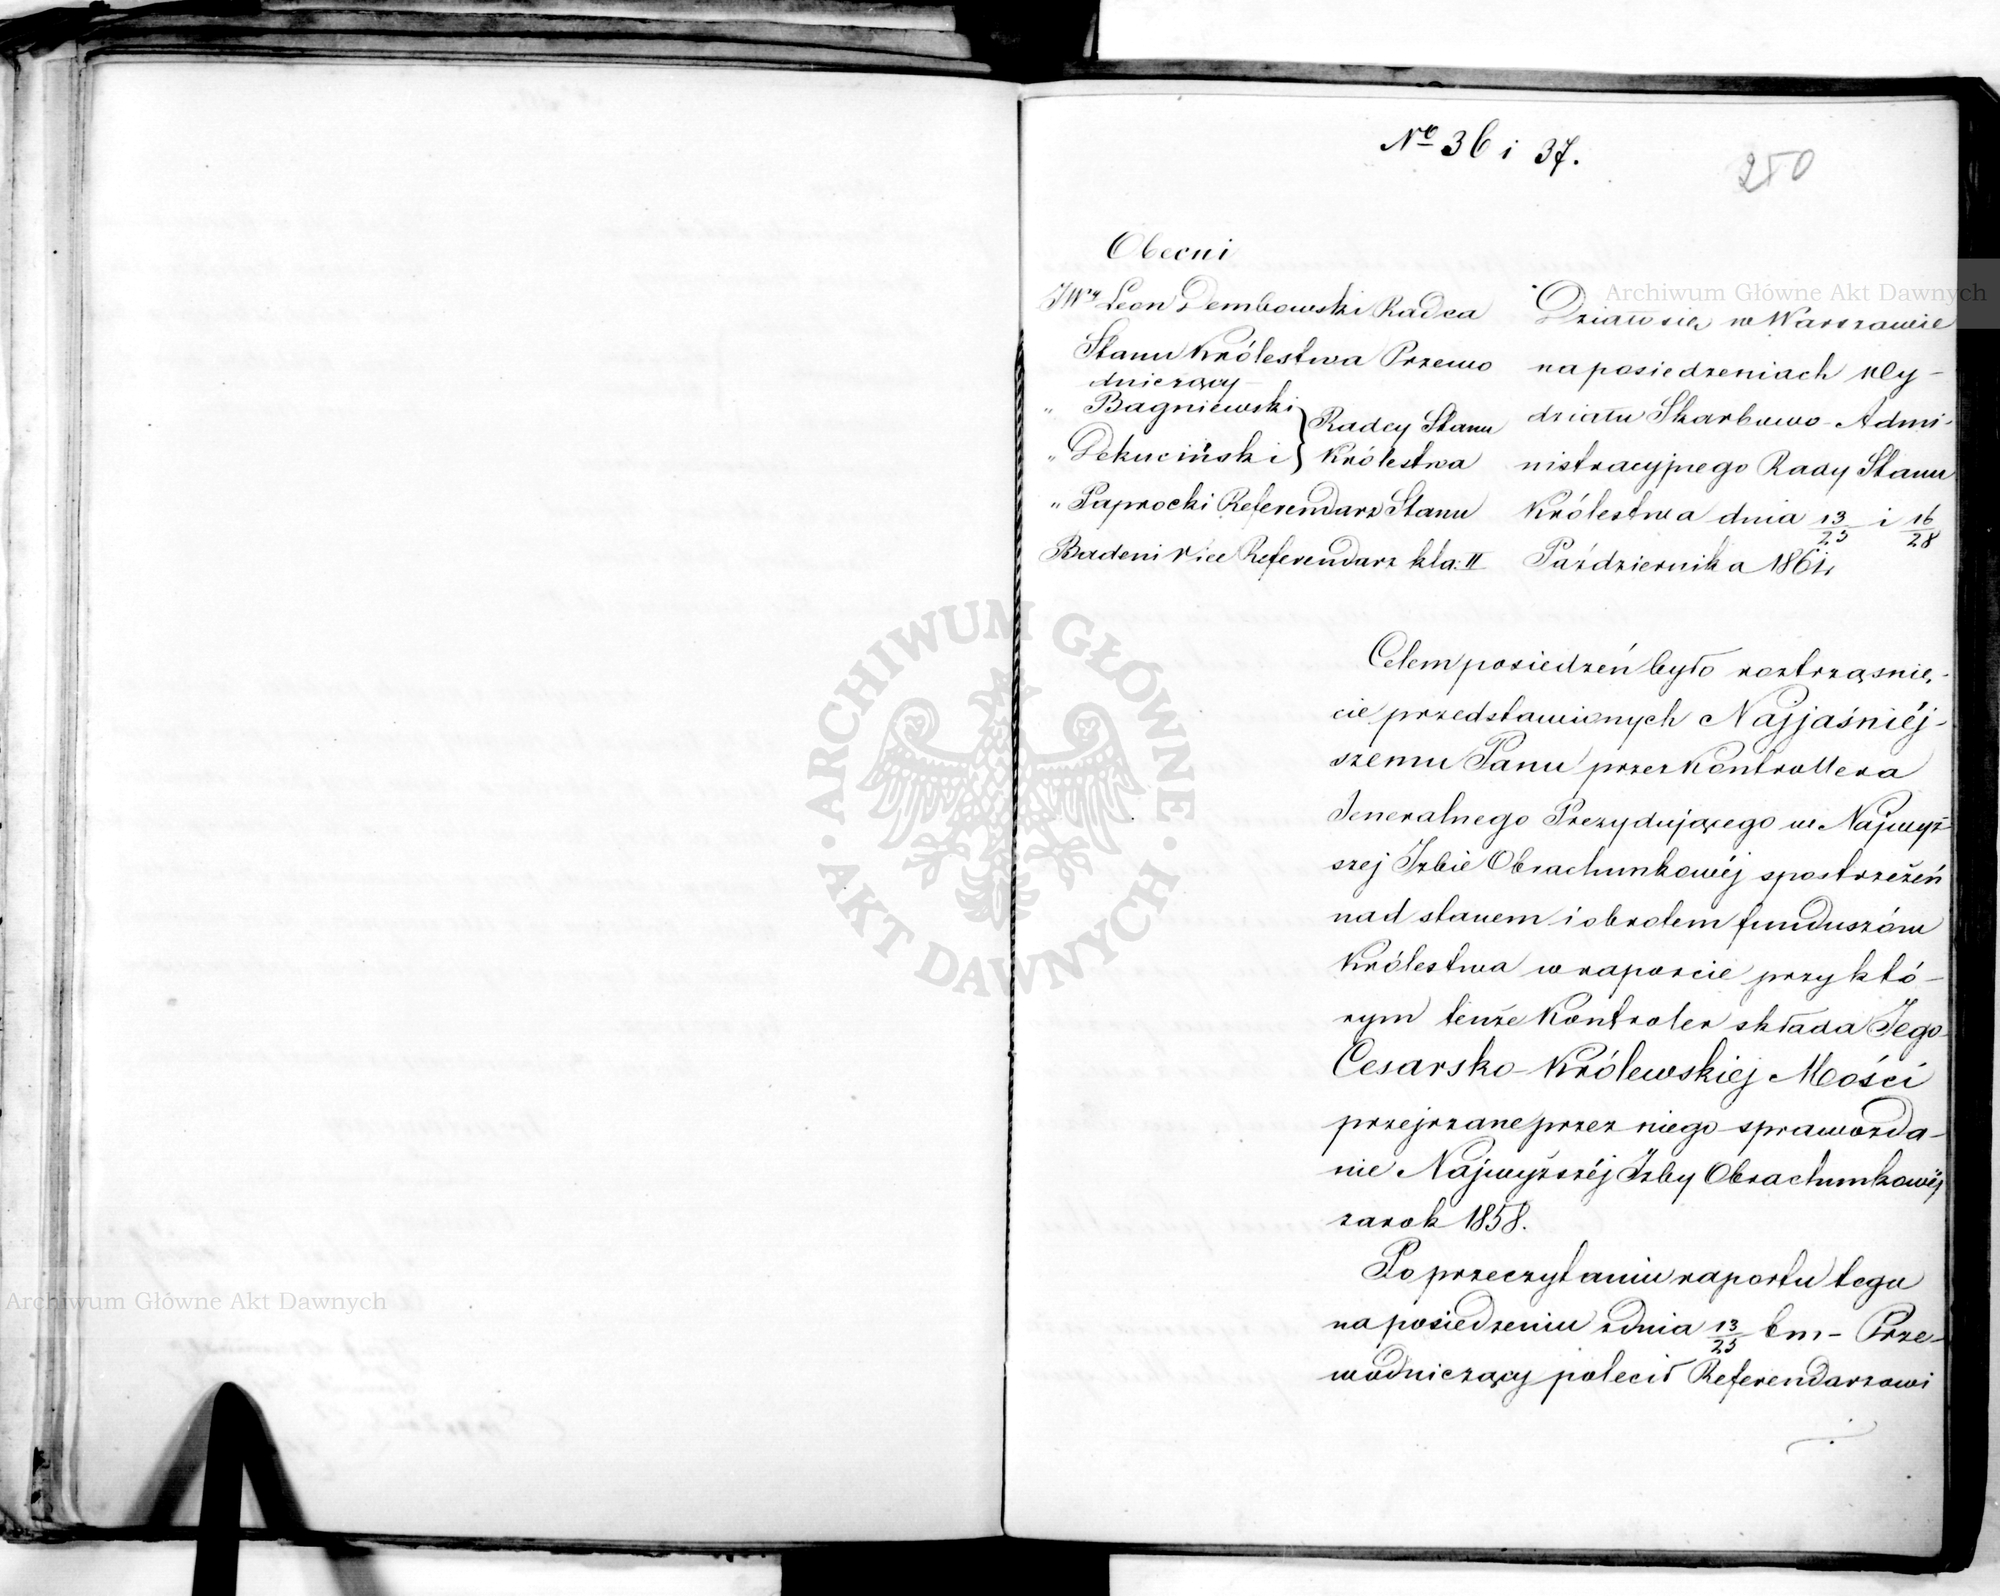 Nº 36 i 37.
250
Obecni
JWny Leon Dembowski Radca
Stanu Królestwa Przewo
dniczący
" Bagniewski
" Dekuciński
Radcy Stanu
Królestwa
" Paprocki Referendarz Stanu
Badeni Vice Referendarz kla: II
Działo się w Warszawie
na posiedzeniach Wy-
działu Skarbowo-Admi-
nistracyjnego Rady Stanu
Królestwa dnia 13/25 i 16/28
Października 1861 r.
Celem posiedzeń było roztrząśnię-
cie przedstawionych Najjaśniéj-
szemu Panu przez Kontrollera
Jeneralnego Prezydującego w Najwyż-
szej Izbie Obrachunkowéj spostrzeżeń
nad stanem i obrotem funduszów
Królestwa w raporcie przy któ-
rym tenże Kontroler składa Jego
Cesarsko-Królewskiej Mości
przejrzane przez niego sprawozda-
nie Najwyższéj Izby Obrachunkowéj
za rok 1858.
Po przeczytaniu raportu tego
na posiedzeniu z dnia 13/25 bm- Prze-
wodniczący polecił Referendarzowi
Archiwum Główne Akt Dawnych
Archiwum Główne Akt Dawnych
· ARCHIWUM GŁÓWNE · AKT DAWNYCH